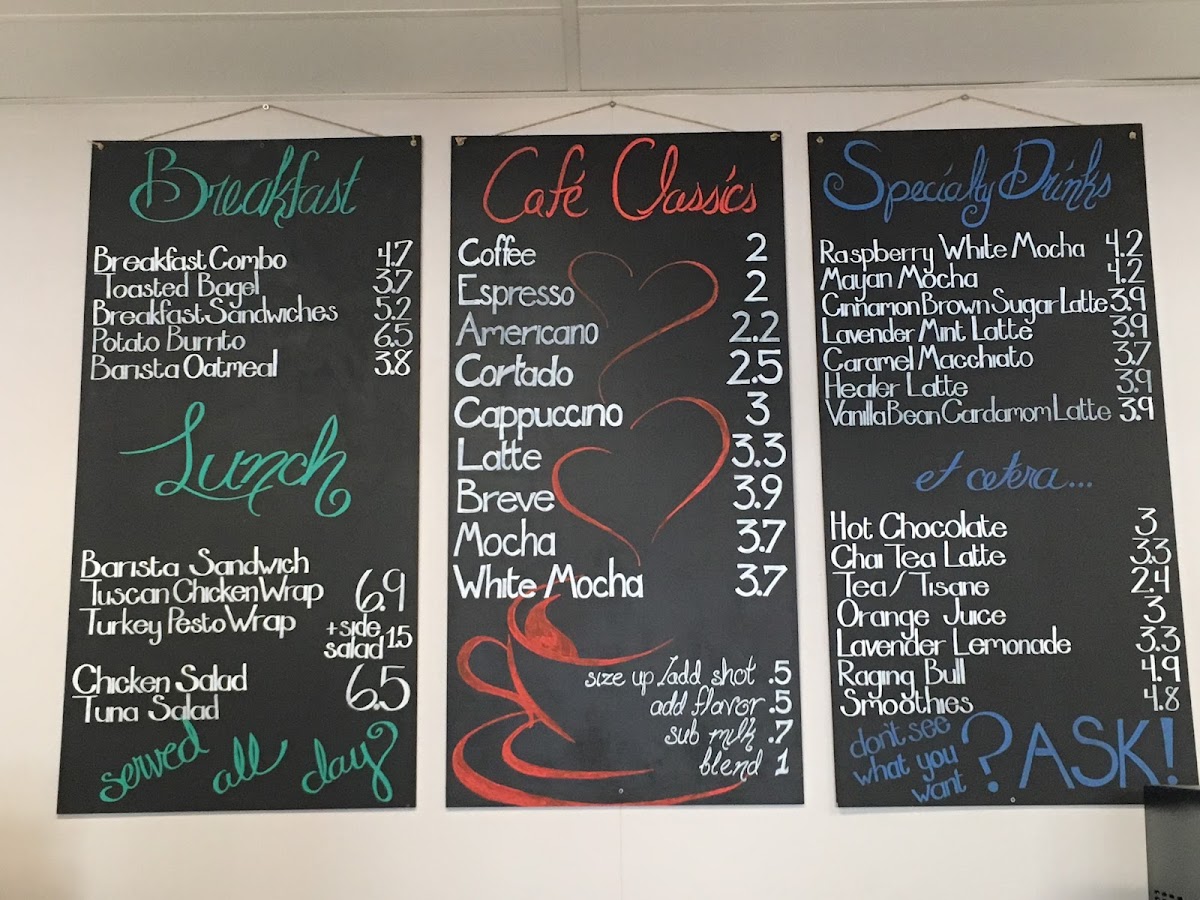 Breakfast
Breakfast Combo 4.7
Toasted Bagel 3.7
Breakfast Sandwiches 5.2
Potato Burrito 6.5
Barista Oatmeal 3.8
Lunch
Barista Sandwich
Tuscan Chicken Wrap 6.9
Turkey Pesto Wrap
+side
salad 1.5
Chicken Salad 6.5
Tuna Salad
served all day
Café Classics
Coffee 2
Espresso 2
Americano 2.2
Cortado 2.5
Cappuccino 3
Latte 3.3
Breve 3.9
Mocha 3.7
White Mocha 3.7
size up /add shot .5
add flavor .5
sub milk .7
blend 1
Specialty Drinks
Raspberry White Mocha 4.2
Mayan Mocha 4.2
Cinnamon Brown Sugar Latte 3.9
Lavender Mint Latte 3.9
Caramel Macchiato 3.7
Healer Latte 3.9
Vanilla Bean Cardamom Latte 3.9
et cetera...
Hot Chocolate 3
Chai Tea Latte 3.3
Tea / Tisane 2.4
Orange Juice 3
Lavender Lemonade 3.3
Raging Bull 4.9
Smoothies 4.8
don't see
what you
want ? ASK!